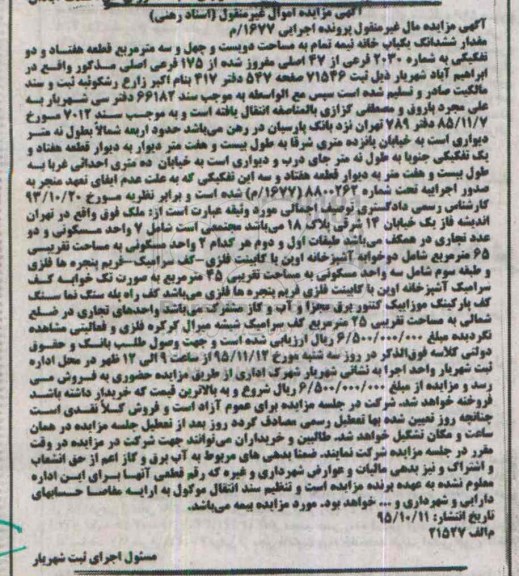 آگهی مزایده اموال غیرمنقول (اسناد رهنی)
آگهی مزایده مال غیرمنقول پرونده اجرایی ۱۶۷۷/م
مقدار ششدانگ یکباب خانه نیمه تمام به مساحت دویست و چهل و سه مترمربع قطعه هفتاد و دو
تفکیکی به شماره ۲۰۳۰ فرعی از ۴۷ اصلی مفروز شده از ۱۷۵ فرعی اصلی مذکور واقع در
ابراهیم آباد شهریار ذیل ثبت ۷۱۵۴۶ صفحه ۵۴۷ دفتر ۴۱۷ بنام اکبر زارع رشکوئیه ثبت و سند
مالکیت صادر و تسلیم شده است سپس مع الواسطه به موجب سند ۶۶۱۸۲ دفتر سی شهریار به
علی مجرد باروق و مصطفی کزازی بالمناصفه انتقال یافته است و به موجب سند ۷۰۱۲ مورخ
۸۵/۱۱/۷ دفتر ۷۸۹ تهران نزد بانک پارسیان در رهن می‌باشد حدود اربعه شمالاً بطول نه متر
دیواری است به خیابان پانزده متری شرقا به طول بیست و هفت متر دیوار به دیوار قطعه هفتاد و
یک تفکیکی جنوبا به طول نه متر جای درب و دیواری است به خیابان ده متری احداثی غربا به
طول بیست و هفت متر به دیوار قطعه هفتاد و سه این تفکیکی که به علت عدم ایفای تعهد منجر به
صدور اجراییه تحت شماره ۸۸۰۰۲۶۲ (۱۶۷۷/م) شده است و برابر نظریه مورخ ۹۳/۱۰/۲۰
کارشناس رسمی دادگستری توصیف اجمالی مورد وثیقه عبارت است از: ملک فوق واقع در تهران
اندیشه فاز یک خیابان ۱۳ شرقی پلاک ۱۸ می‌باشد مجتمعی است شامل ۷ واحد مسکونی و دو
عدد تجاری در همکف می‌باشد طبقات اول و دوم هر کدام ۲ واحد مسکونی به مساحت تقریبی
۶۵ مترمربع شامل دوخوابه آشپزخانه اوپن با کابینت فلزی -کف سرامیک-فریم پنجره ها فلزی
و طبقه سوم شامل سه واحد مسکونی به مساحت تقریبی ۴۵ مترمربع به صورت تک خوابه کف
سرامیک آشپزخانه اوپن با کابینت فلزی فریم پنجره ها فلزی می‌باشد کف راه پله سنگ نما سنگ
کف پارکینگ موزاییک کنتور برق مجزا و آب و گاز مشترک می‌باشد واحدهای تجاری در ضلع
شمالی به مساحت تقریبی ۲۵ مترمربع کف سرامیک شیشه میرال کرکره فلزی و فعالیتی مشاهده
نگردیده مبلغ ۶/۵۰۰/۰۰۰/۰۰۰ ریال ارزیابی شده است و جهت وصول طلب بانک و حقوق
دولتی کلاسه فوق‌الذکر در روز سه شنبه مورخ ۹۵/۱۱/۱۲ از ساعت ۹ الی ۱۲ ظهر در محل اداره
ثبت شهریار واحد اجرا به نشانی شهریار شهرک اداری از طریق مزایده حضوری به فروش می
رسد و مزایده از مبلغ ۶/۵۰۰/۰۰۰/۰۰۰ ریال شروع و به بالاترین قیمت که خریدار داشته باشد
فروخته خواهد شد. شرکت در جلسه مزایده برای عموم آزاد است و فروش کلاً نقدی است
چنانچه روز تعیین شده بها تعطیل رسمی مصادف گردد روز بعد از تعطیل جلسه مزایده در همان
ساعت و مکان تشکیل خواهد شد. طالبین و خریداران می‌توانند جهت شرکت در مزایده در وقت
مقرر در جلسه مزایده شرکت نمایند. ضمنا بدهی های مربوط به آب برق و گاز اعم از حق انشعاب
و اشتراک و نیز بدهی مالیات و عوارض شهرداری و غیره که رقم قطعی آنها برای این اداره
معلوم نشده به عهده برنده مزایده است و تنظیم سند انتقال موکول به ارایه مفاصا حسابهای
دارایی و شهرداری و ... خواهد بود. مورد مزایده بیمه می‌باشد.
تاریخ انتشار: ۹۵/۱۰/۱۱
م‌الف ۲۱۵۲۷
مسئول اجرای ثبت شهریار